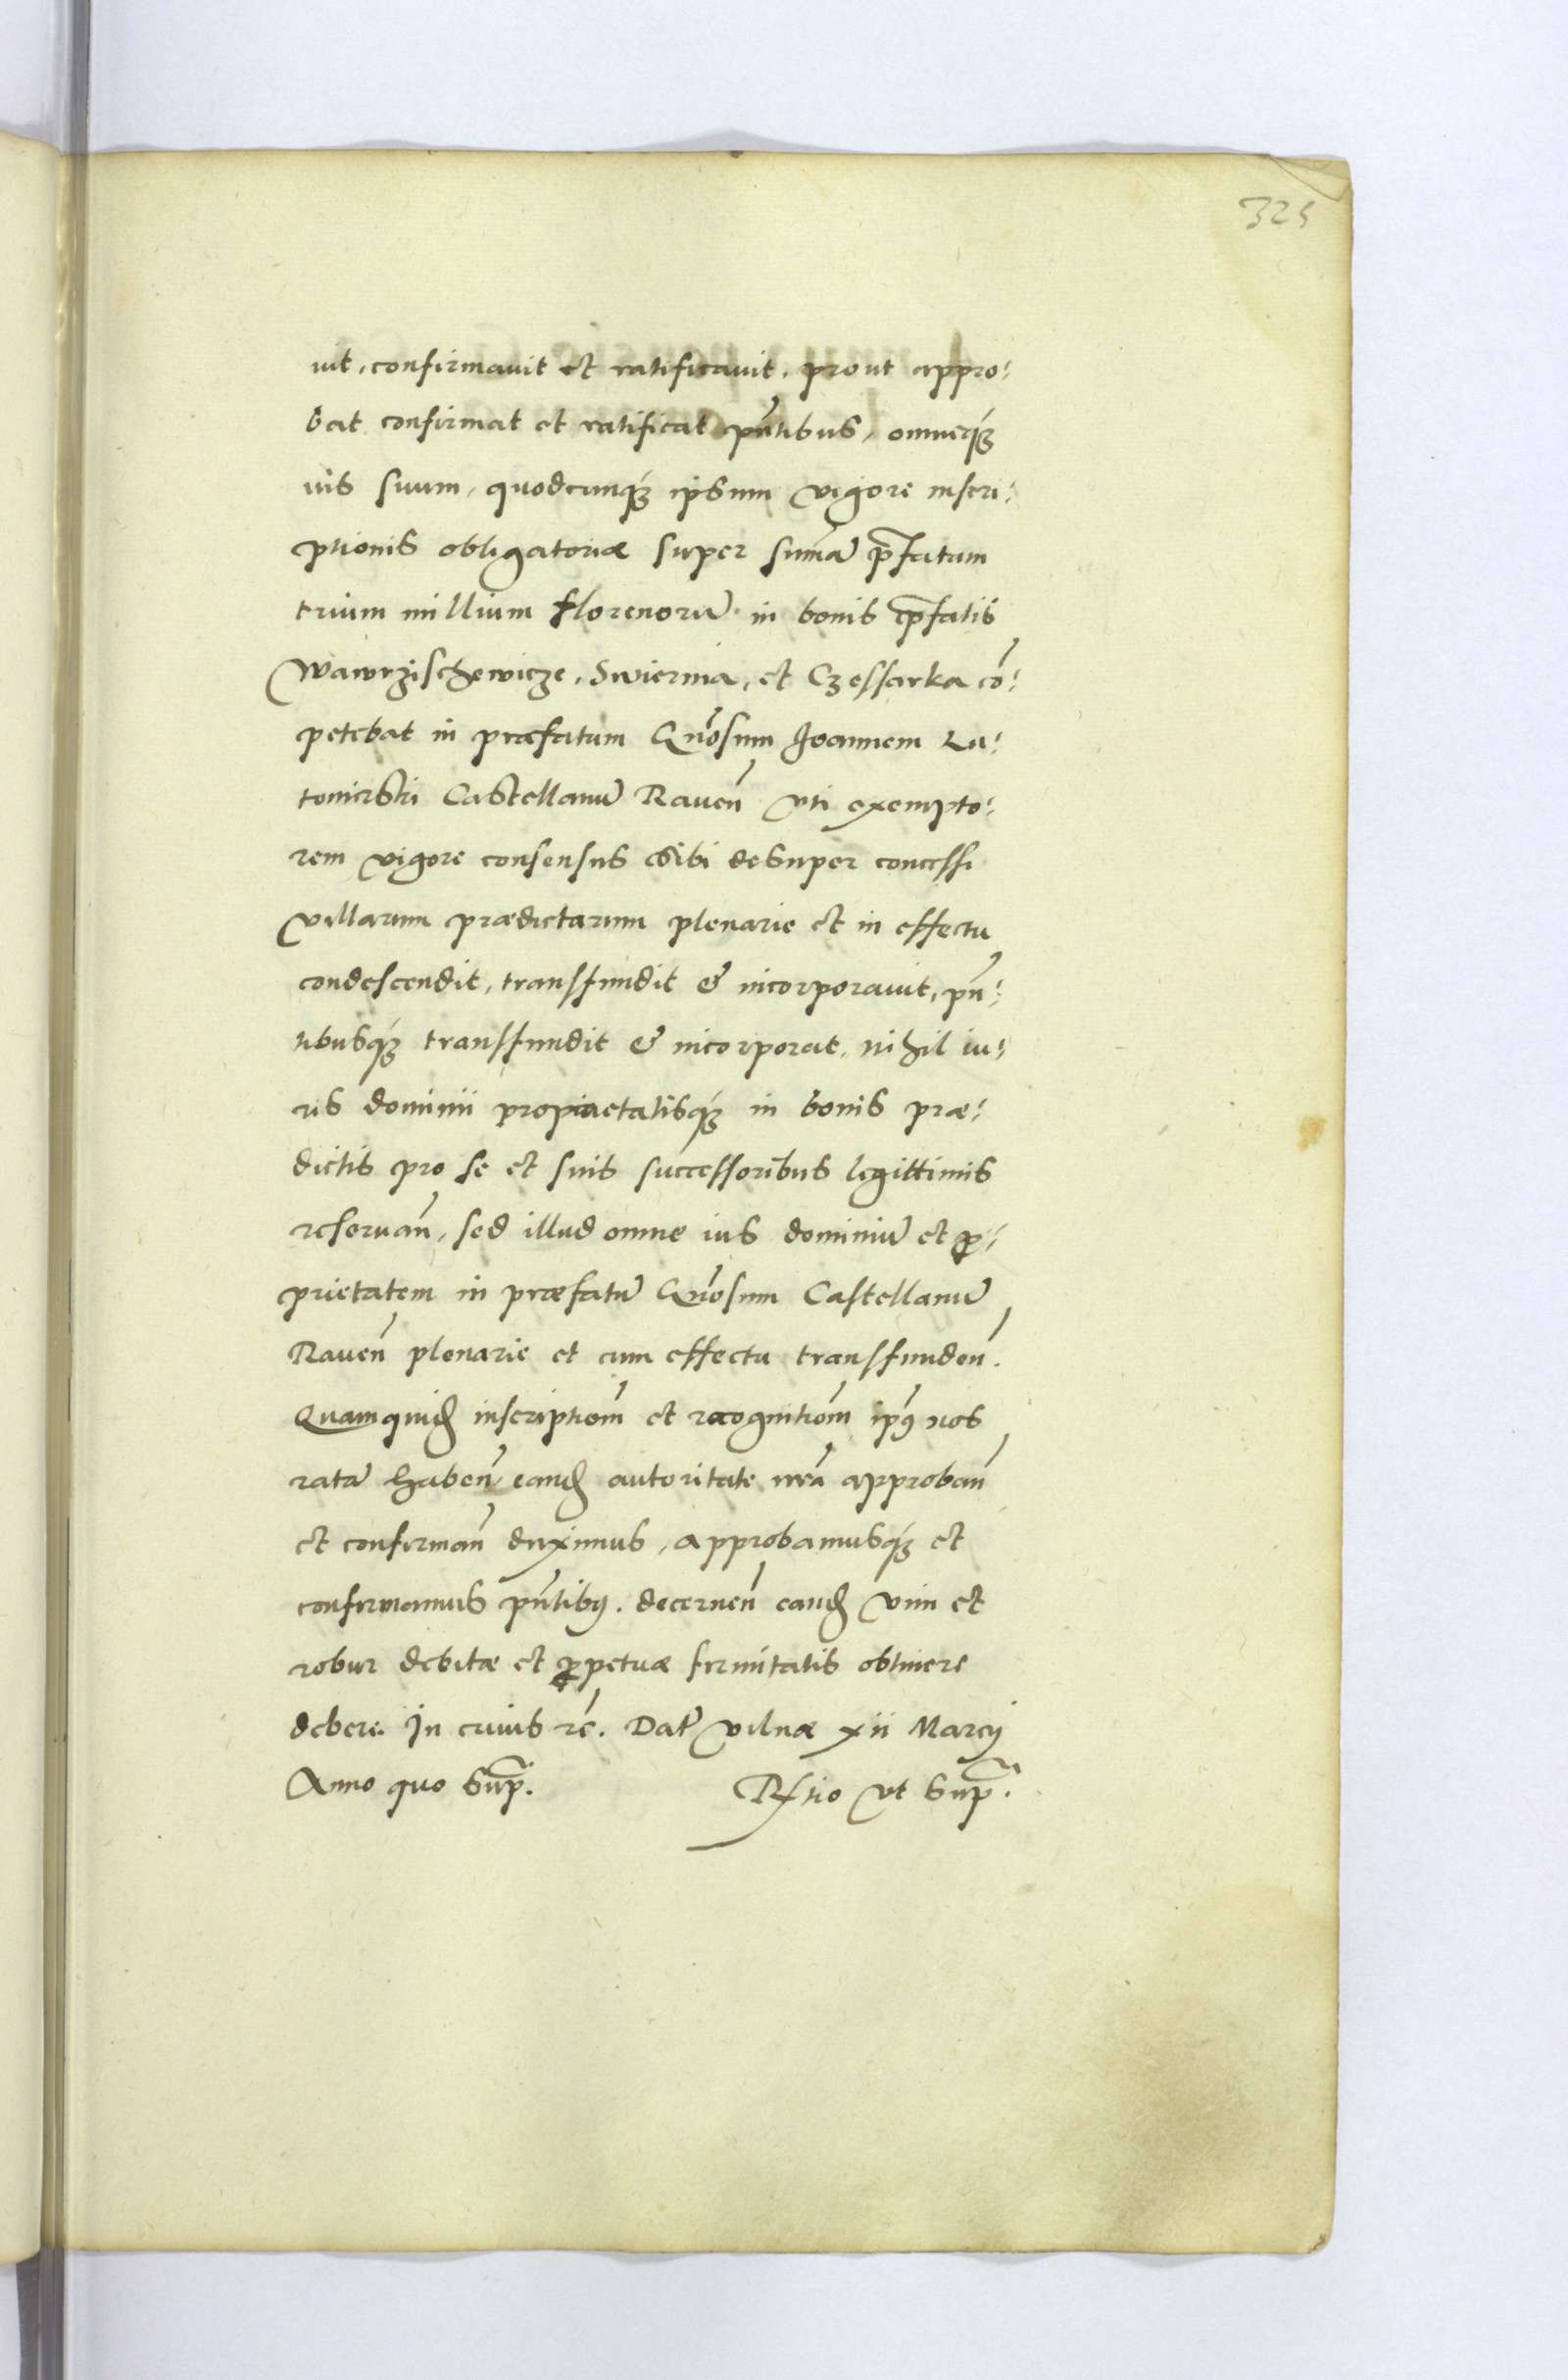 325
uit, confirmauit et ratificauit, prout appro:
bat confirmat et ratificat pñtibus, omneq́ꝫ
ius suum, quodcunq́ꝫ ipsum vigore inscri:
ptionis obligatoriæ super sum̃ã p̄fatam
trium millium florenorũ in bonis p̄fatis
Wawrzischewicze, Swiernia, et Czessarka cõ:
petebat in præfatum G̃nosum Joannem Lu:
tomirski Castellanũ Raueñ vti exempto:
rem vigore consensus sibi desuper concessi
villarum prædictarum plenarie et in effectu
condescendit, transfundit & incorporauit, pñ:
tibusq́ꝫ transfundit & incorporat, nihil iu:
ris dominii proprietatisq́ꝫ in bonis præ:
dictis pro se et suis successoribus legittimis
reseruañ, sed illud omne ius dominiũ et ꝓ:
prietatem in præfatũ G̃nosum Castellanũ
Raueñ plenarie et cum effectu transfundeñ.
Quamquidẽ inscriptioñm et recognitioñm ip̃ꝰ nos
ratã habeñ eandẽ autoritate nr̃a approbañ
et confirmañ duximus, approbamusq́ꝫ et
confirmamus pñtibꝰ. decerneñ eandẽ vim et
robur debitæ et ꝑpetuæ firmitatis obtinere
debere. In cuius rẽ. Dat̃ Vilnæ xii Marcij
Anno quo sup̃.
R̃tio vt sup̃.